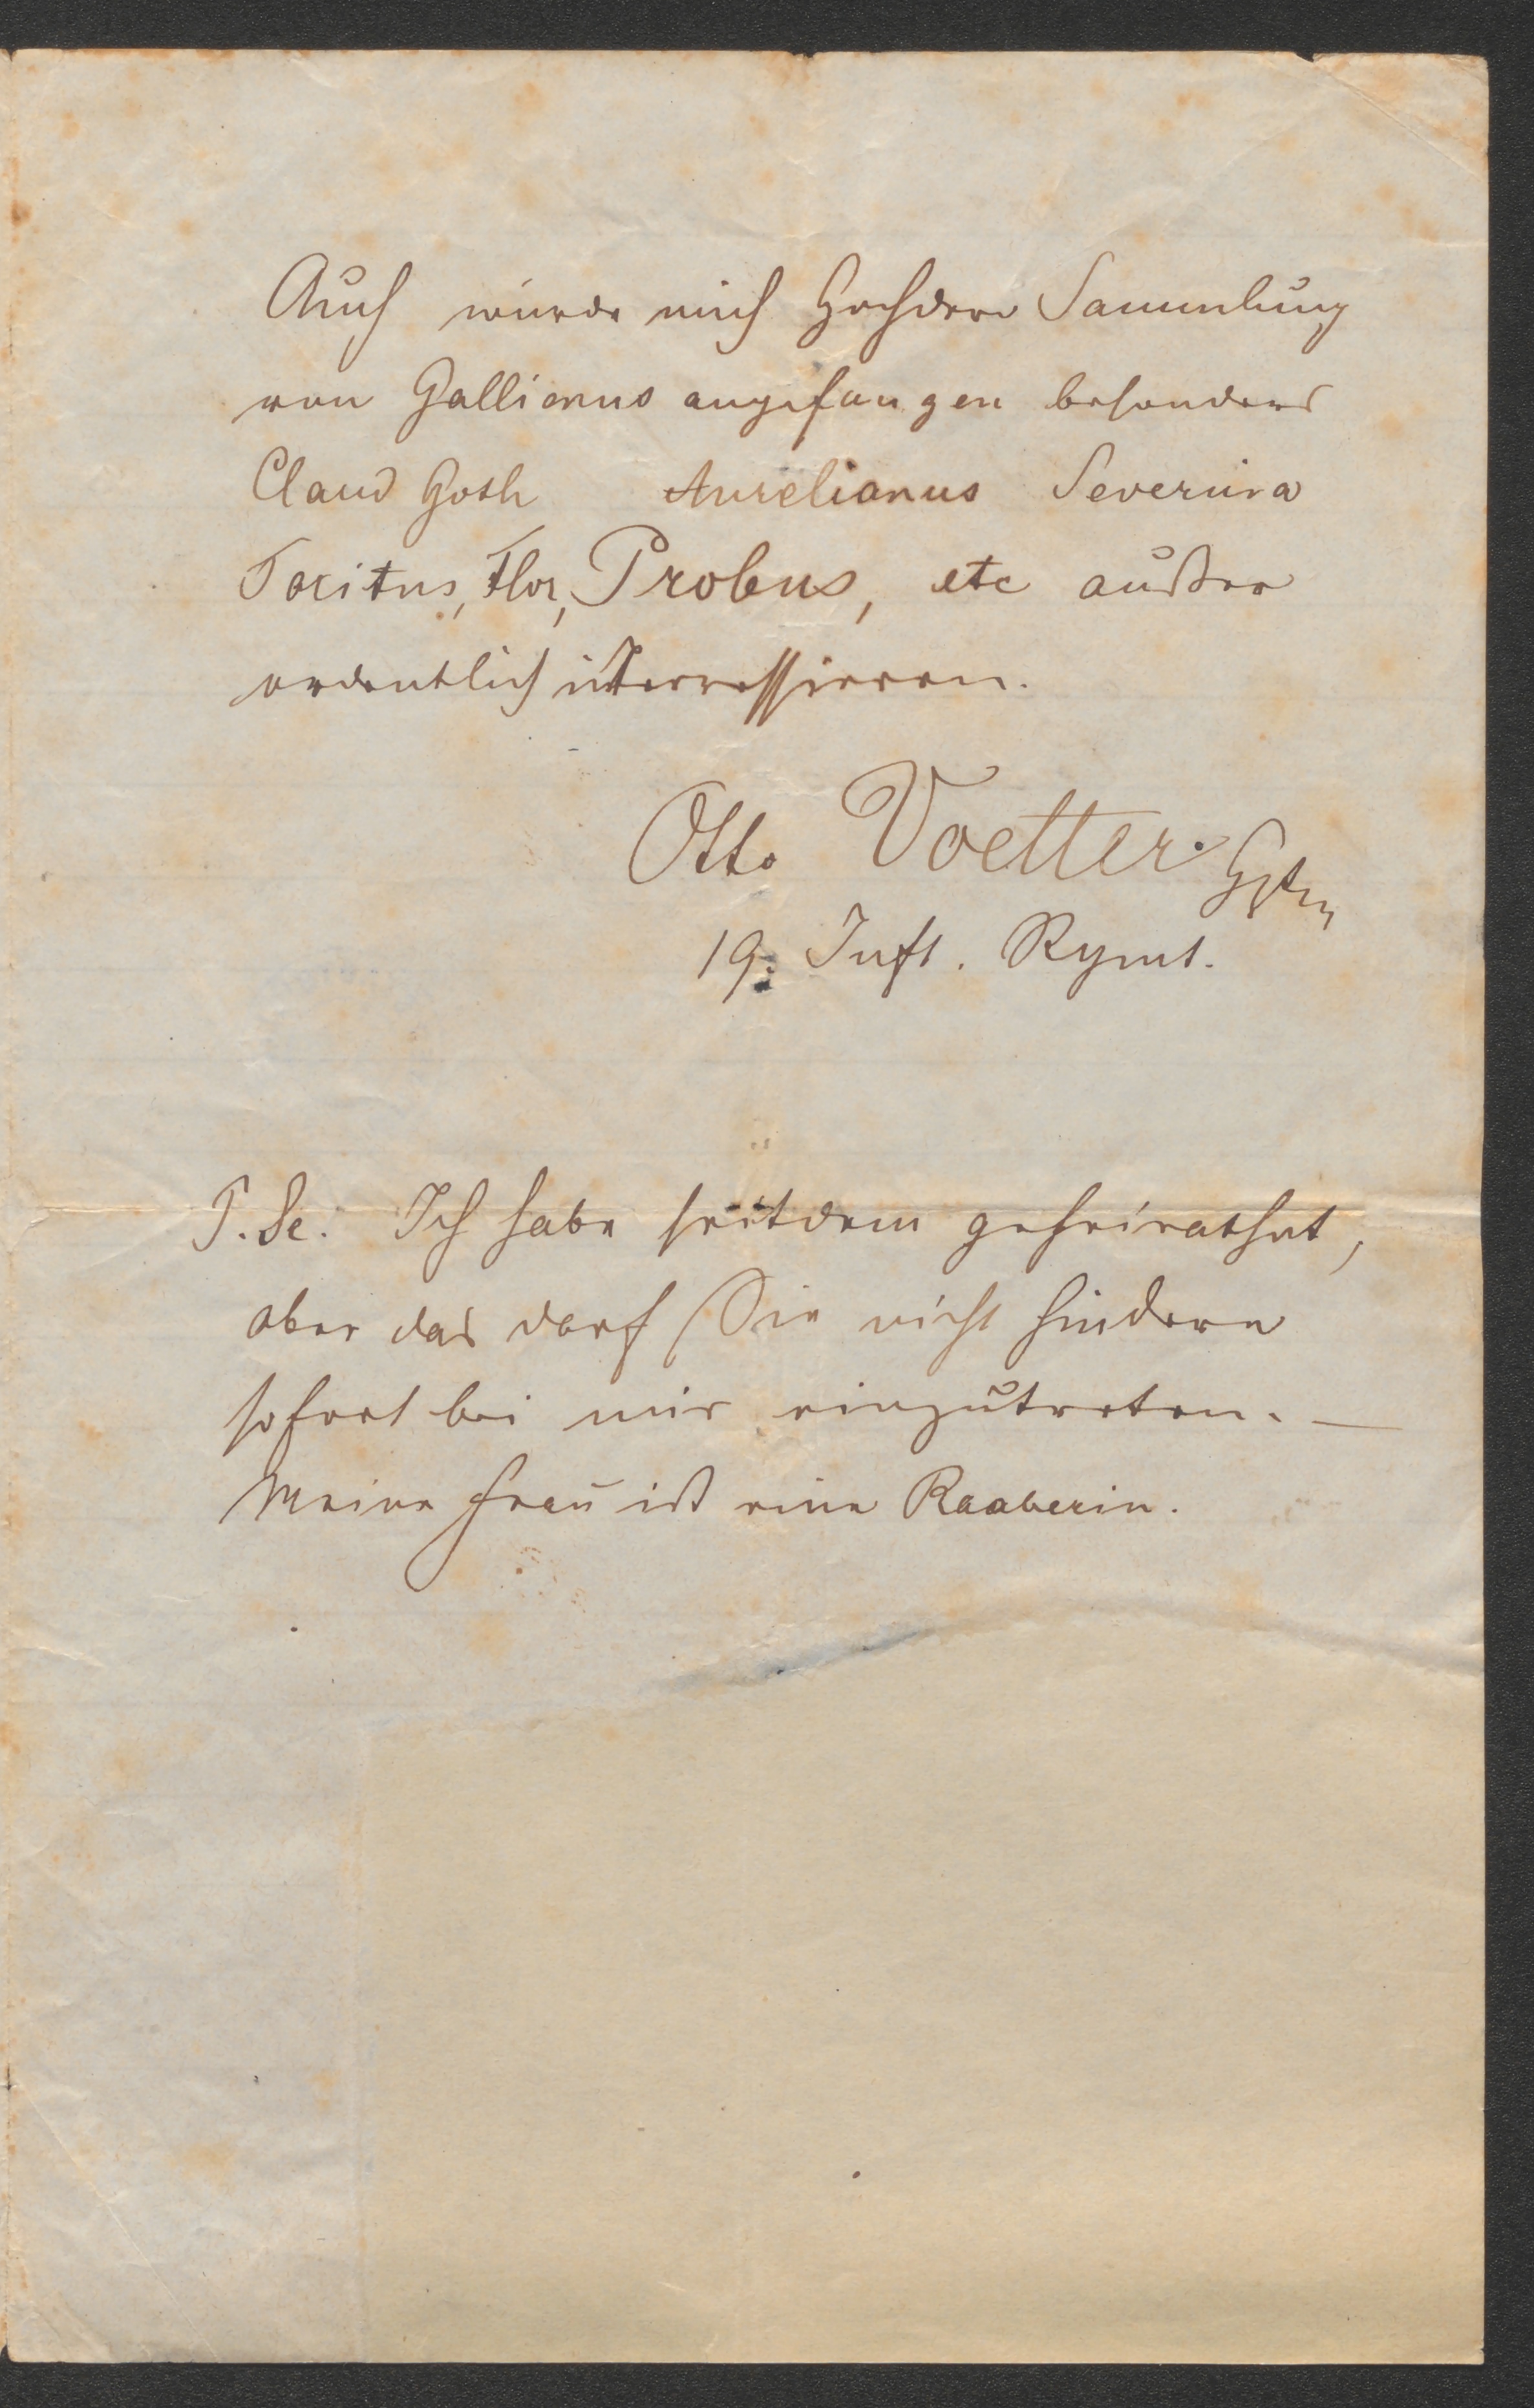 Auch würde mich Hochdero Sammlung
von Gallienus angefangen besonders
Claud Goth Aurelianus Severina
Tacitus, Flor, Probus, etc außer
ordentlich interressieren.
Otto Voetter. Hptm
19. Inft. Rgmt.
P. Sc. Ich habe seitdem geheirathet,
aber das darf Sie nicht hindern
sofort bei mir einzutreten. —
Meine Frau ist eine Raaberin.